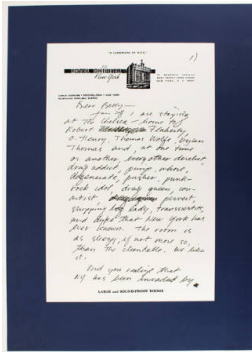 "A LANDMARK OF N.Y.C."
1)
HOTEL CHELSEA
New York
Dear Betsy—
Jan & I are staying
at The Chelsea – home to
Robert Flaherty,
O Henry, Thomas Wolfe, Dylan
Thomas and, at one time
or another, every other derelict
drug addict, pimp, whore,
degenerate, pusher, punk-
rock idol, drag queen, con-
artist, pervert,
shopping bag lady, transvestite,
and dupe that New York has
ever known. The room is
as sleazy, if not more so,
than the clientele. We like
it.
Did you realize that
NY has been invaded by
LARGE AND SOUND-PROOF ROOMS